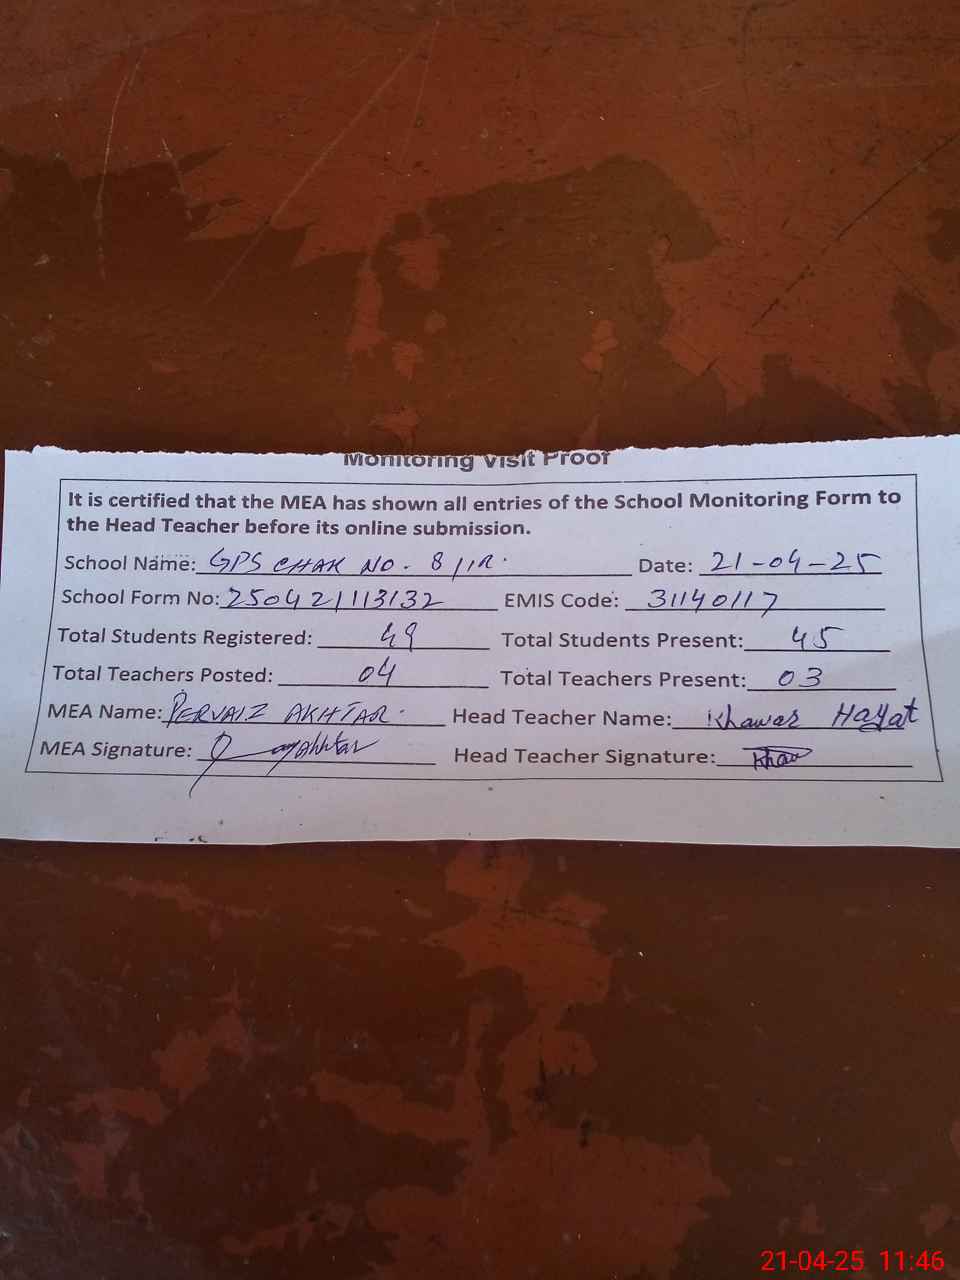 Monitoring Visit Proof
It is certified that the MEA has shown all entries of the School Monitoring Form to
the Head Teacher before its online submission.
School Name: GPS CHAK NO. 8/1R. Date: 21-04-25
School Form No: 250421113132 EMIS Code: 31140117
Total Students Registered: 49 Total Students Present: 45
Total Teachers Posted: 04 Total Teachers Present: 03
MEA Name: PERVAIZ AKHTAR. Head Teacher Name: Khawar Hayat
MEA Signature: Head Teacher Signature: Khaw
21-04-25 11:46